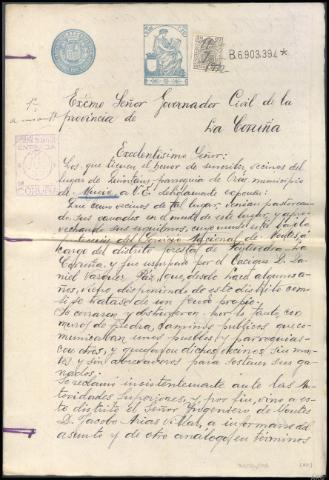 B.6.903.394 *
Excmo Señor Governador Civil de la
provincia de
La Coruña
Excelentísimo Señor:
Los que tienen el honor de suscribir, vecinos del
lugar de Quintans, parroquia de municipio
de Mugia, a V.E. debidamente exponen:
Que como vecinos de tal lugar, venían pastorean-
do sus ganados en el monte de este lugar, y apro-
vechando sus esquilmos, cuyo monte está bajo la
del Servicio Nacional de Montes, á
cargo del distrito forestal de Pontevedra-La
Coruña, y fué usurpado por el Cacique D. Da-
niel Vazquez Páiz, que, desde hace algunos a-
ños, viene disponiendo de este distrito como
si se tratase de un feudo propio.
Se cerraron y obstruyeron, por lo tanto, con
muros de piedra, caminos publicos que co-
munican unos pueblos y parroquias
con otros, y quedaron dichos vecinos sin mon-
tes y sin abrevaderos para sostener sus ga-
nados.
Se reclamó insistentemente ante las Au-
toridades Superiores, y, por fin, vino a es-
te distrito el Señor Yngeniero de Montes
D. Jacobo Arias Villar, a informarse del
asunto y de otro análogo, en términos